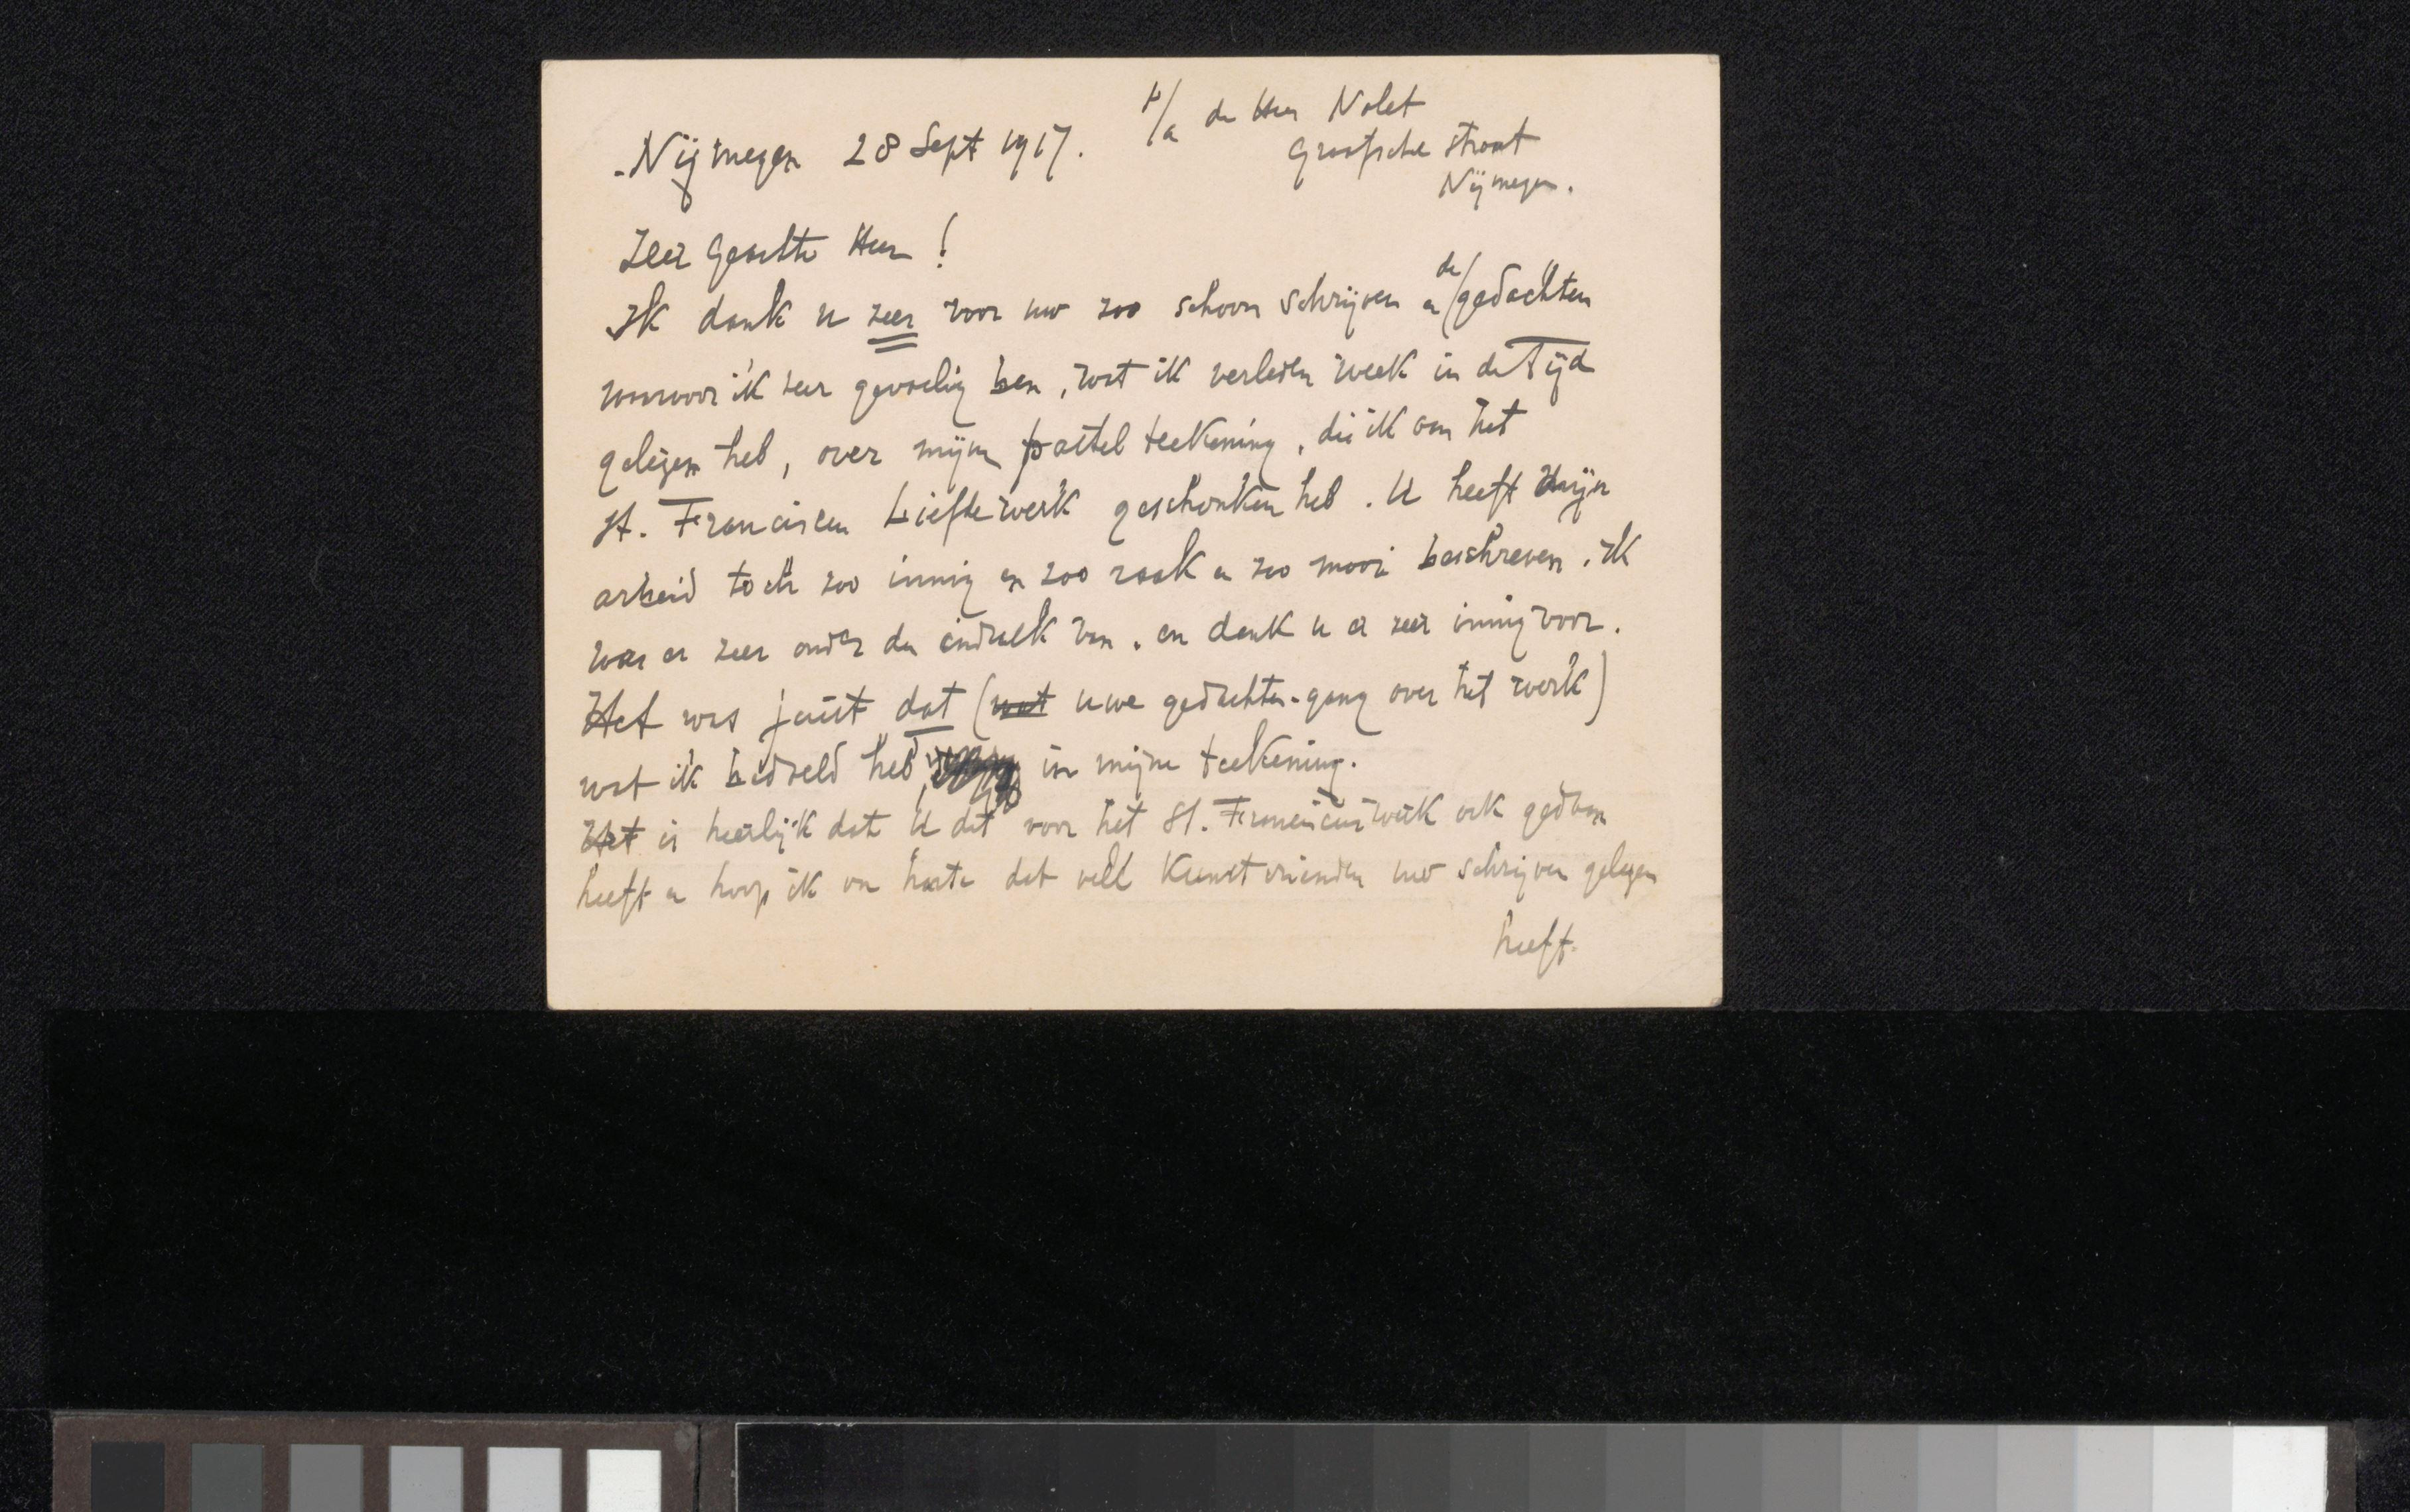 Nijmegen 28 Sept 1917.
p/a de Heer Nolet
Graafsche straat
Nijmegen.
Zeer Geachte Heer!
Ik dank u zeer voor uw zoo schoon schrijven en de gedachten
waarvoor ik zeer gevoelig ben, wat ik verleden week in de Tijd
gelezen heb, over mijn pastel teekening, die ik aan het
St. Franciscus Liefdewerk geschonken heb. U heeft mijn
arbeid toch zoo innig en zoo raak en zoo mooi beschreven. Ik
was er zeer onder de indruk van. en dank u er zeer innig voor.
Het was juist dat (wat uwe gedachten-gang over het werk)
wat ik bedoeld heb, in mijne teekening.
Het is heerlijk dat U dit voor het St. Franciscuswerk ook gedaan
heeft en hoop ik van harte dat veel Kunstvrienden uw schrijven gelezen
heeft.